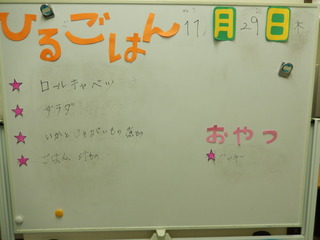 ひるごはん 11月29日 木
ロールキャベツ
サラダ
いかとじゃがいもの煮物
ごはん
おやつ
クッキー